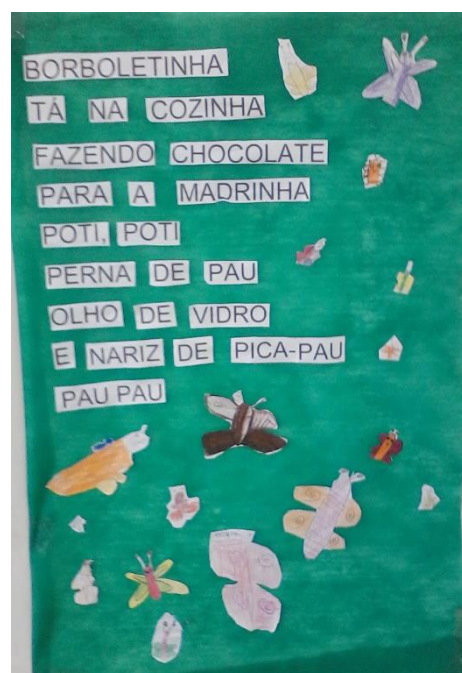 BORBOLETINHA
TÁ NA COZINHA
FAZENDO CHOCOLATE
PARA A MADRINHA
POTI, POTI
PERNA DE PAU
OLHO DE VIDRO
E NARIZ DE PICA-PAU
PAU PAU